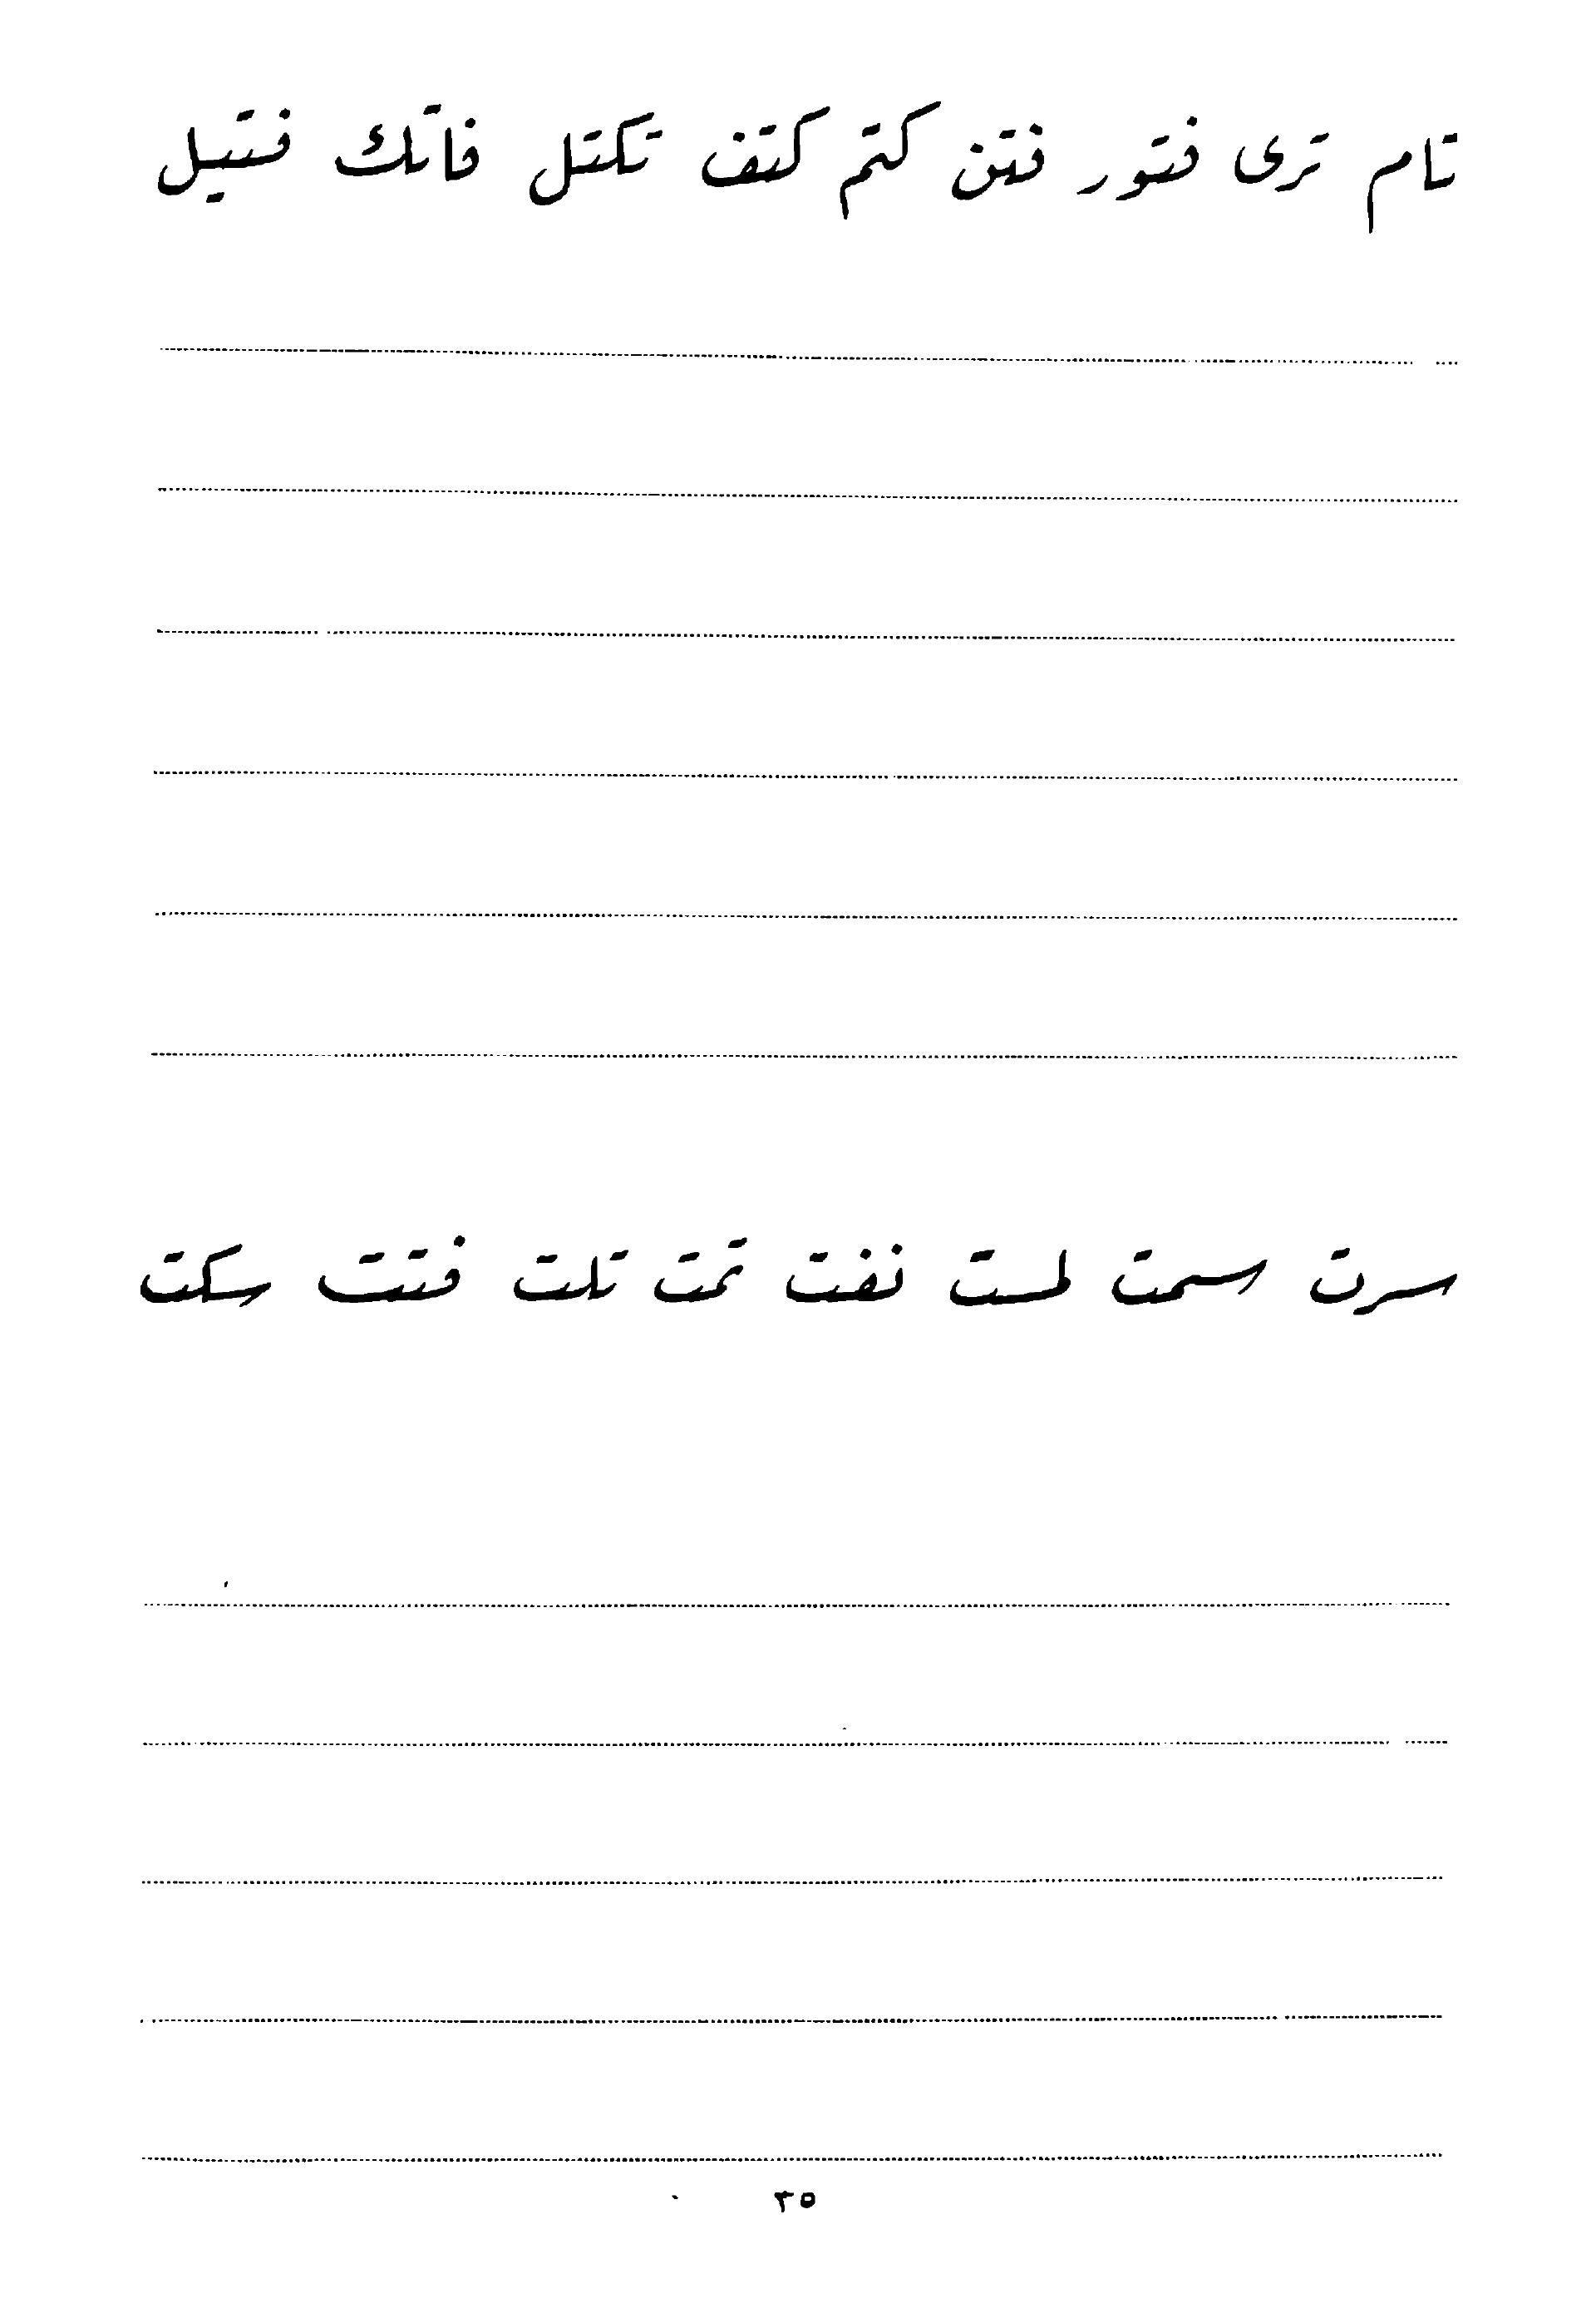 تام ترى فتور فتن كتم كتف تكتل فاتك فتيل
سرت اسمت لمست نفت تمت تلت فتت سكت
٣٥